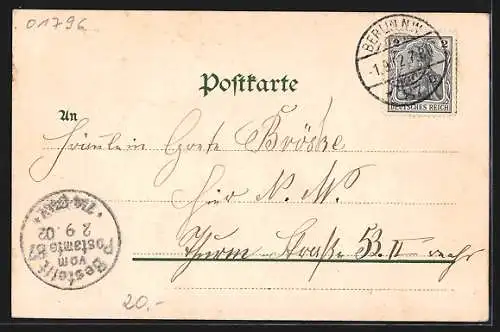 01796
BERLIN N.W.
-1.9.02.7-8N
2
DEUTSCHES REICH
Postkarte
An
Fräulein Grete Bröske
hier N. W.
Thurm Straße 53. II rechts
Bestellt
vom
Postamte 87
2. 9. 02
20.-